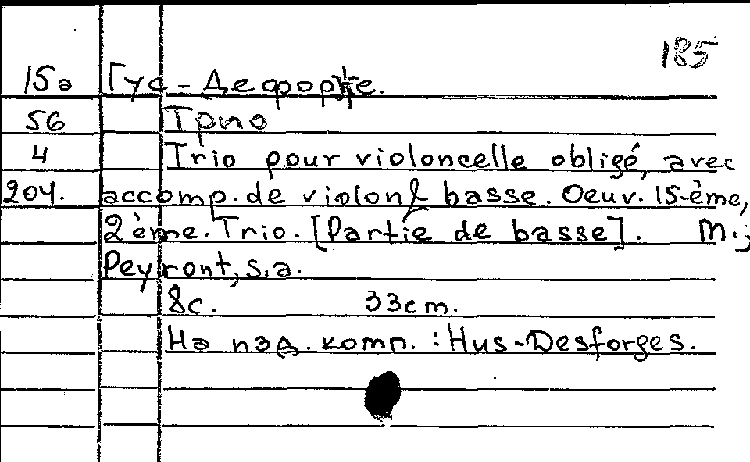 185
15а Гус-Дефорже.
56 Трио
4 Trio pour violoncelle obligé, avec
204. accomp. de violon & basse. Oeuv. 15-ème,
2ème. Trio. [Partie de basse]. M.;
Peyront, s.a.
8с. 33cm.
На изд. комп.: Hus-Desforges.